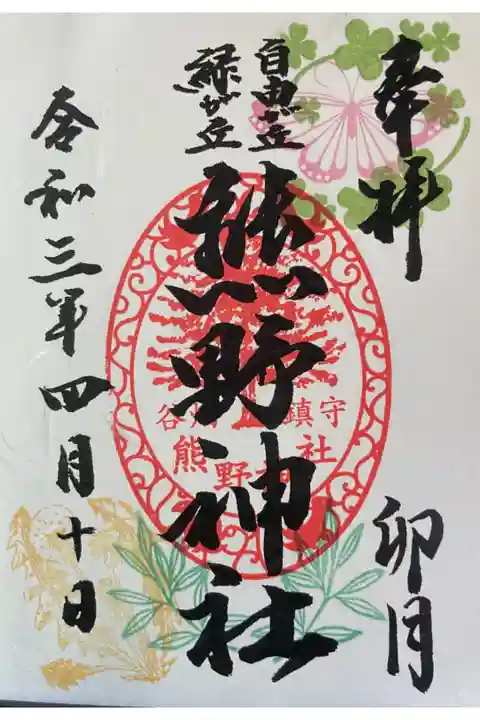 奉拝
卯月
自由が丘
緑が丘
熊野神社
谷 鎮守
熊野神社
令和三年四月十日